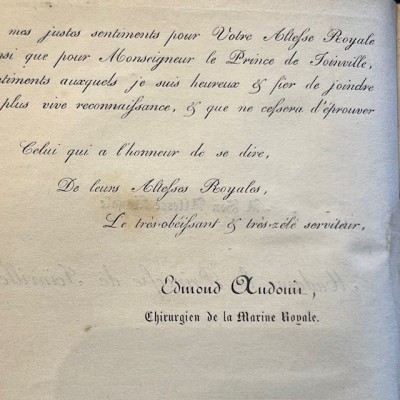 mes justes sentiments pour Votre Altesse Royale
nsi que pour Monseigneur le Prince de Joinville,
ntiments auxquels je suis heureux & fier de joindre
plus vive reconnaissance, & que ne cessera d'éprouver
Celui qui a l'honneur de se dire,
De leurs Altesses Royales,
Le très-obéissant & très-zélé serviteur,
Edmond Audouit,
Chirurgien de la Marine Royale.